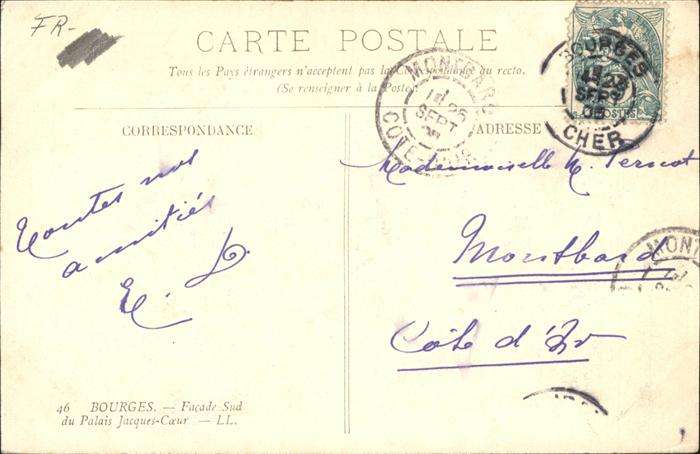 FR-
CARTE POSTALE
Tous les Pays étrangers n'acceptent pas la Correspondance au recto.
(Se renseigner à la Poste)
CORRESPONDANCE
ADRESSE
MONTBARD
25
SEPT
COTE-D'OR
BOURGES
SEPT
CHER
POSTES
Toutes nos
amitiés
E. D.
Mademoiselle M.
Montbard
Côte d'Or
MONT
46 BOURGES. — Façade Sud
du Palais Jacques-Cœur — LL.